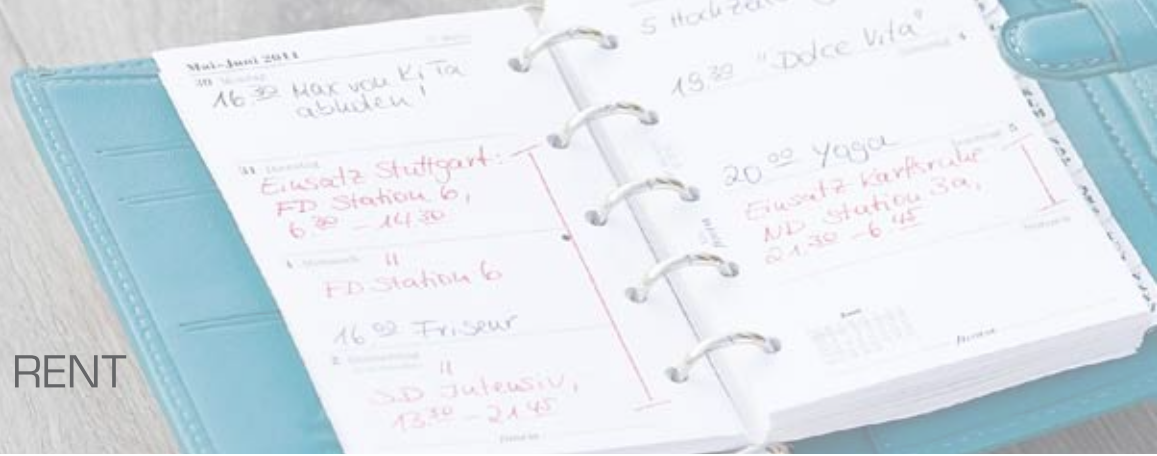 Mai-Juni 2011
30 Montag
16 30 Max von KiTa
abholen!
31 Dienstag
Einsatz Stuttgart:
FD Station 6,
6 30 - 14 30
1 Mittwoch "
FD Station 6
16 00 Friseur
2 "
SD Intensiv,
13 30 - 21 45
5 Hochzei
19.30 "Dolce Vita"
20 00 Yoga
Einsatz Karlsruhe
ND Station 3a,
21.30 - 6 45
RENT